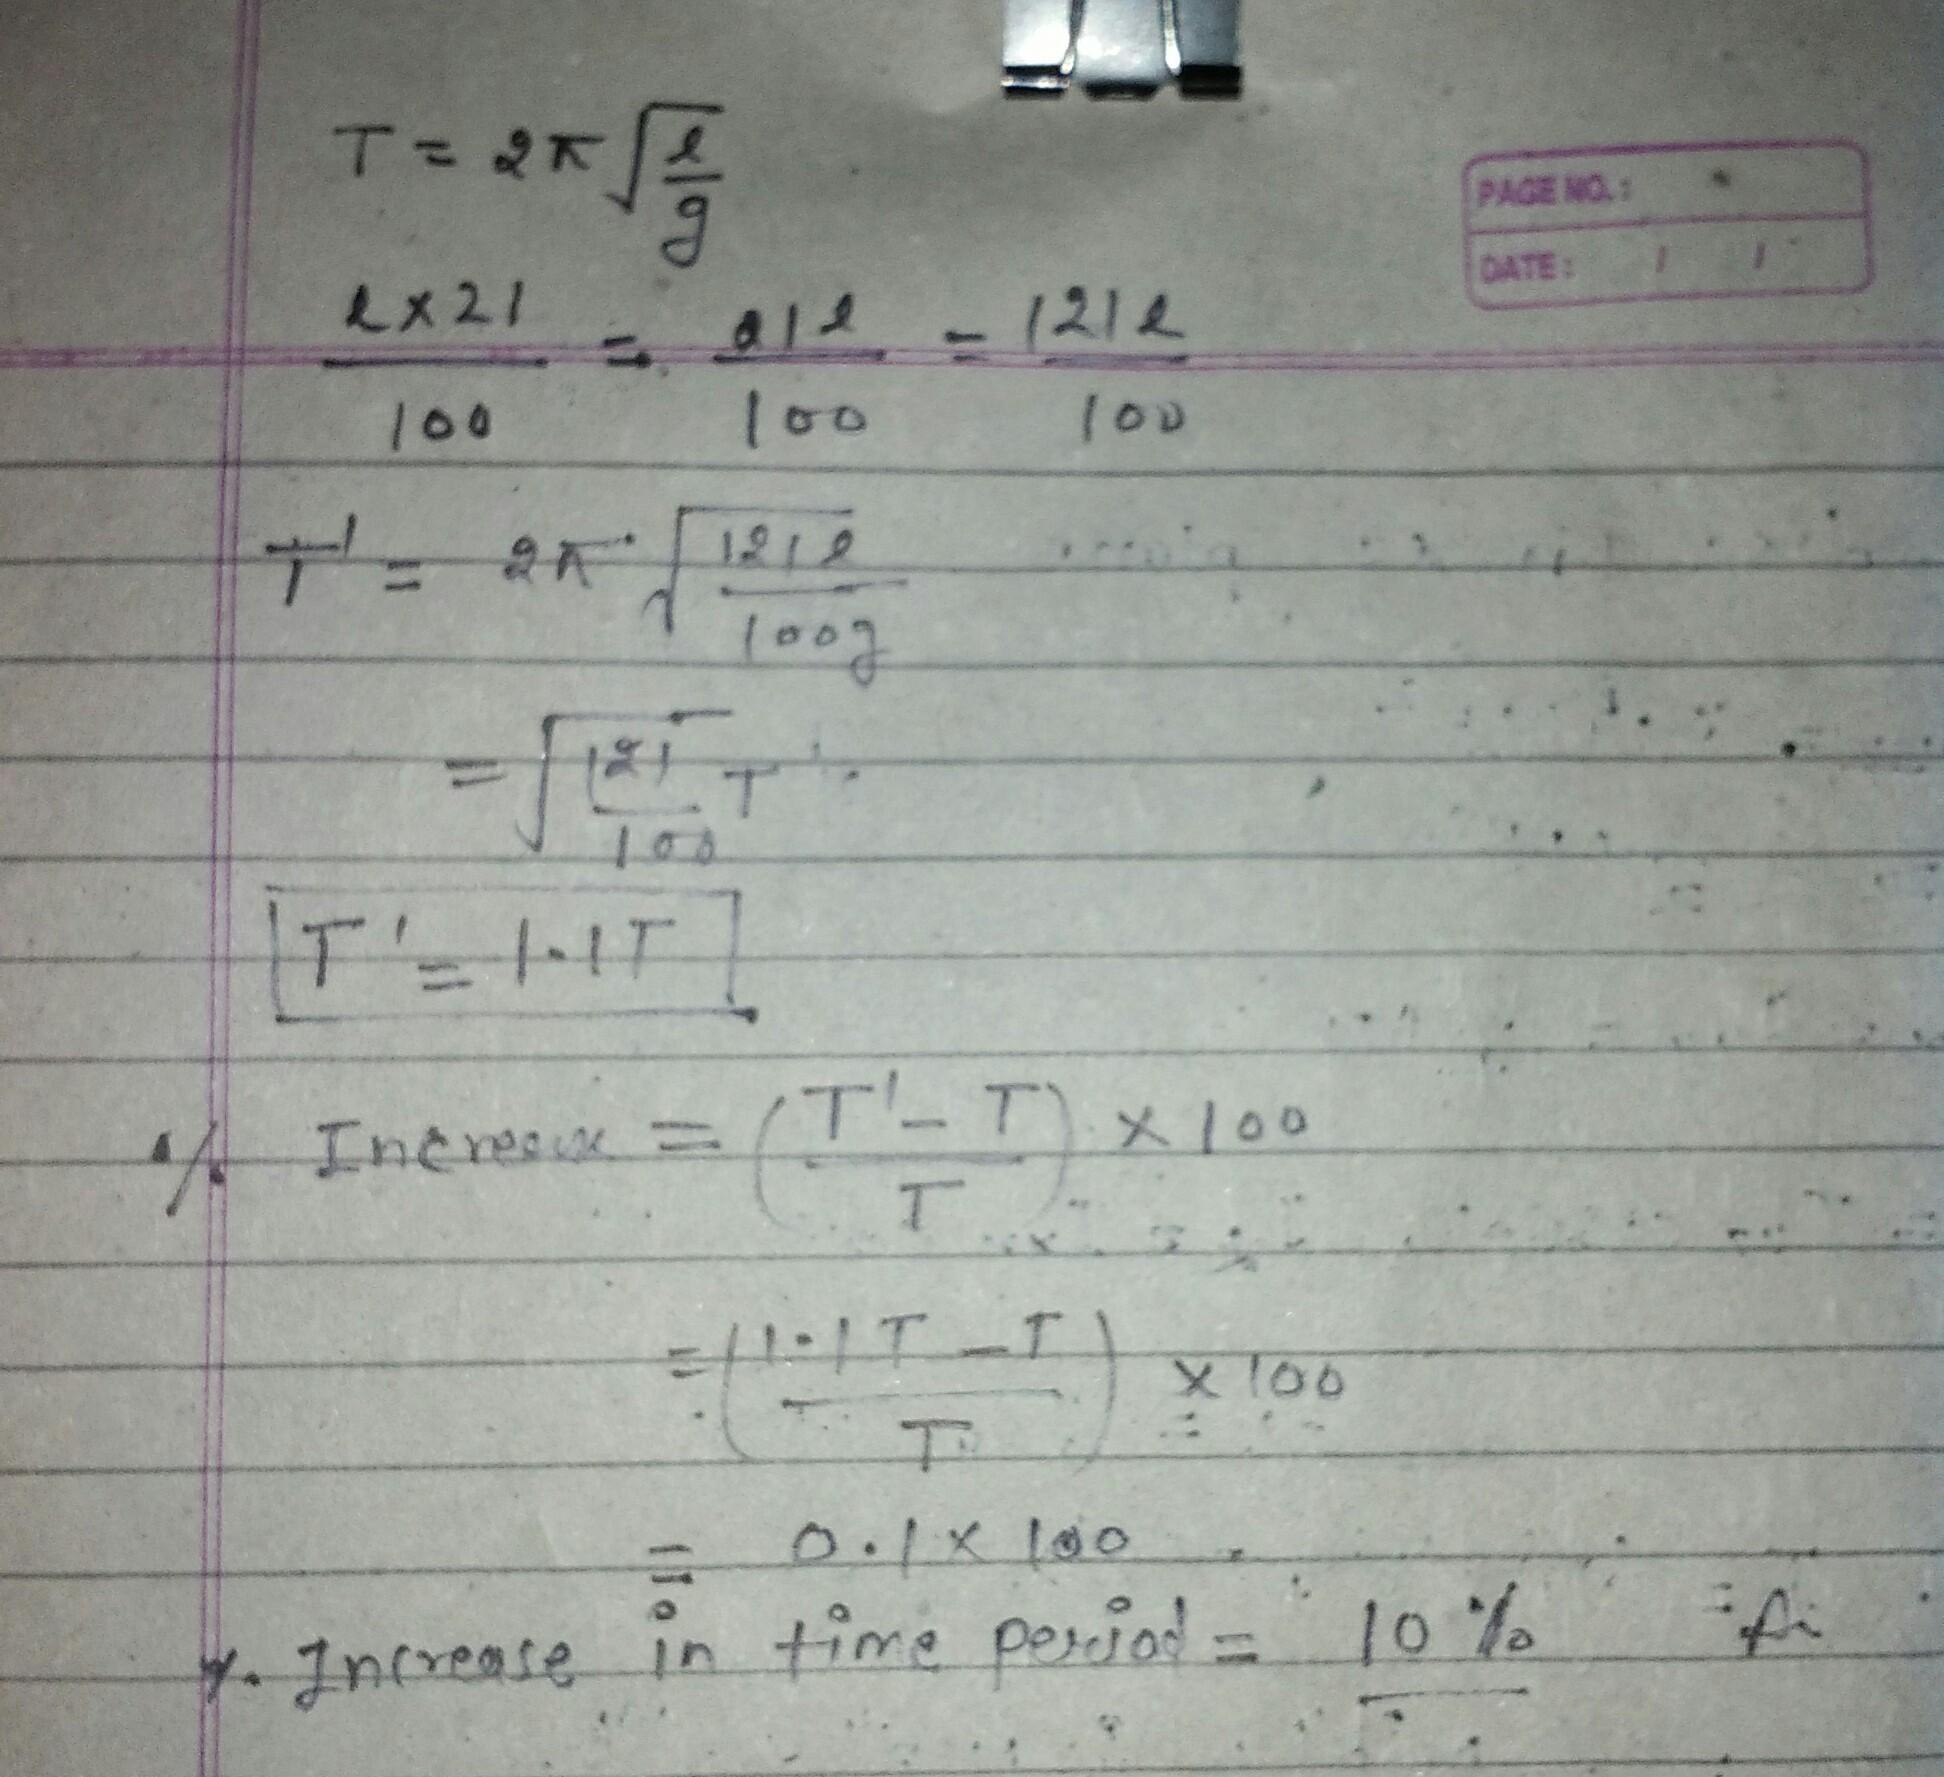 T = 2π √(l/g)
PAGE NO.:
DATE: / /
l×21/100 = 21l/100 = 121l/100
T' = 2π √(121l/100g)
= √(121/100) T
T' = 1.1T
% Increase = (T' - T / T) × 100
= (1.1T - T / T) × 100
= 0.1 × 100
%. Increase in time period = 10 %